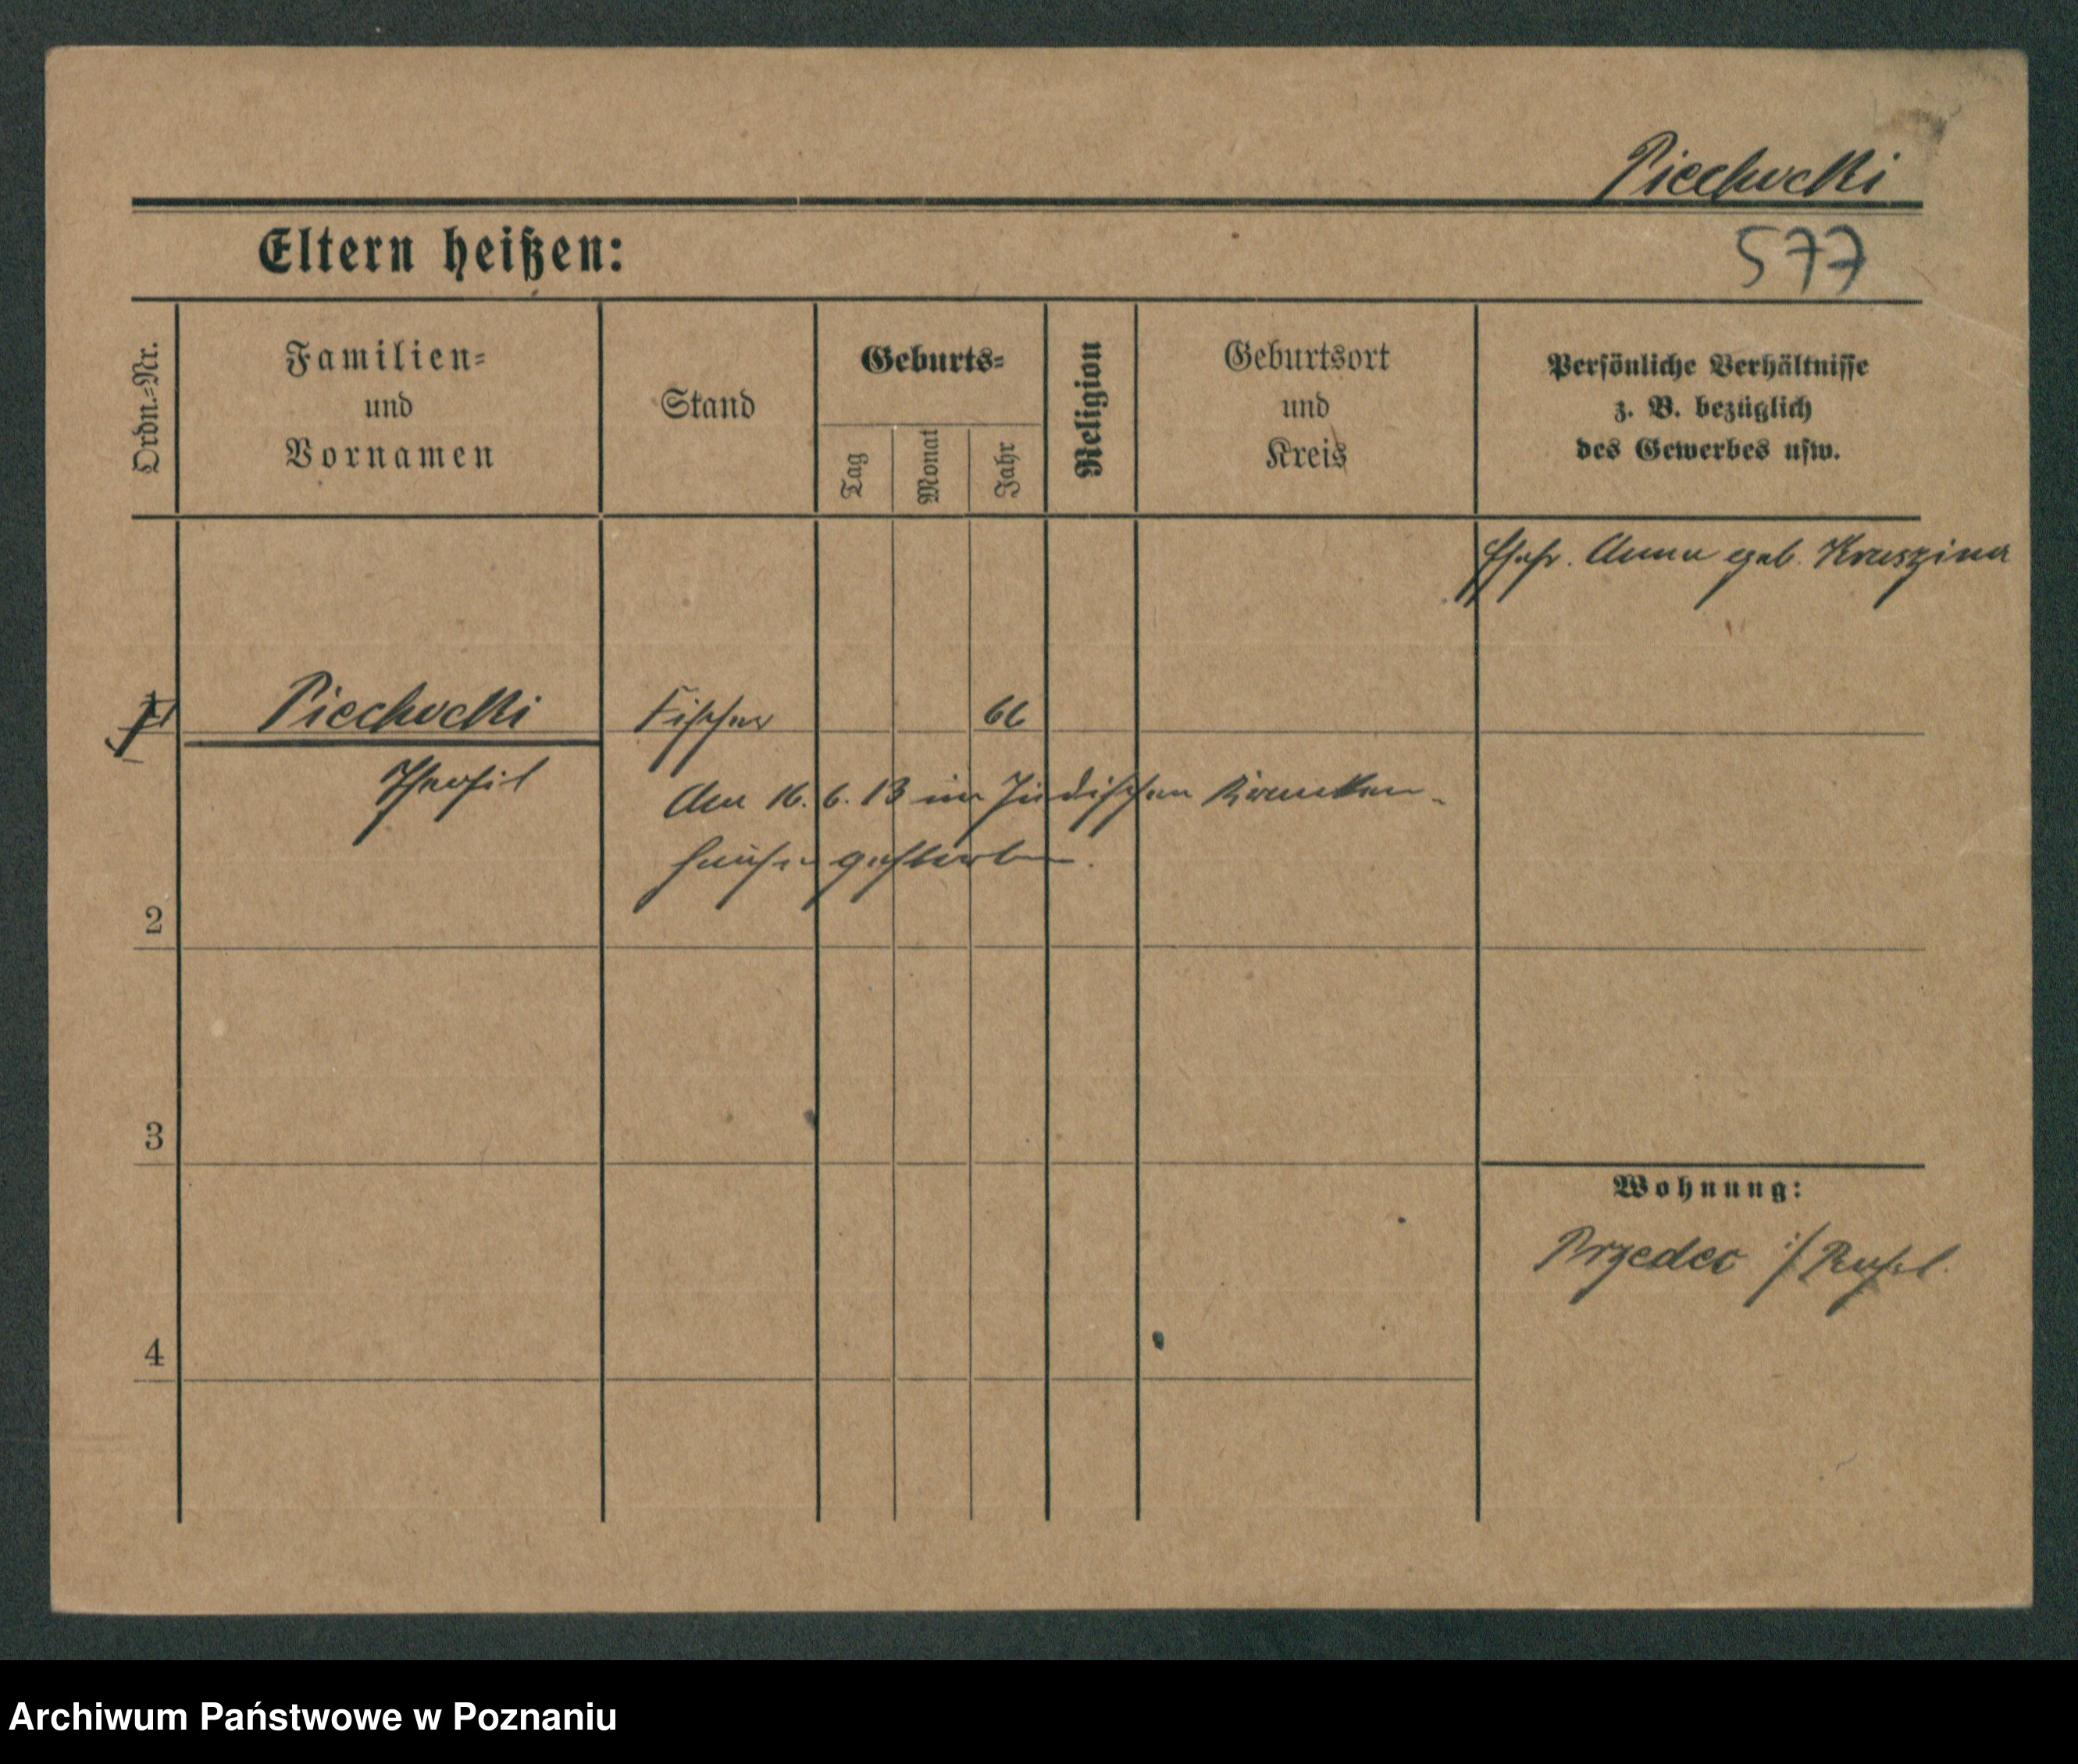 Piechocki
Eltern heißen:
577
Ordn.=Nr.
Familien=
und
Vornamen
Stand
Geburts=
Tag
Monat
Jahr
Religion
Geburtsort
und
Kreis
Persönliche Verhältnisse
z. B. bezüglich
des Gewerbes usw.
Ehefr. Anna geb.
Piechocki
Fischer
66
Am 16. 6. 13 im Jüdischen Kranken-
hause gestorben.
2
3
Wohnung:
Przedec /
4
Archiwum Państwowe w Poznaniu